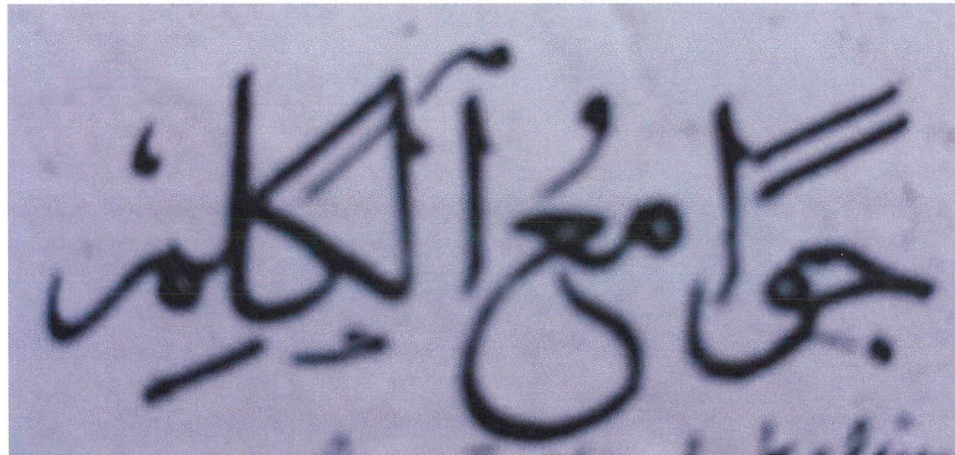 جوامعُ الكلِمِ